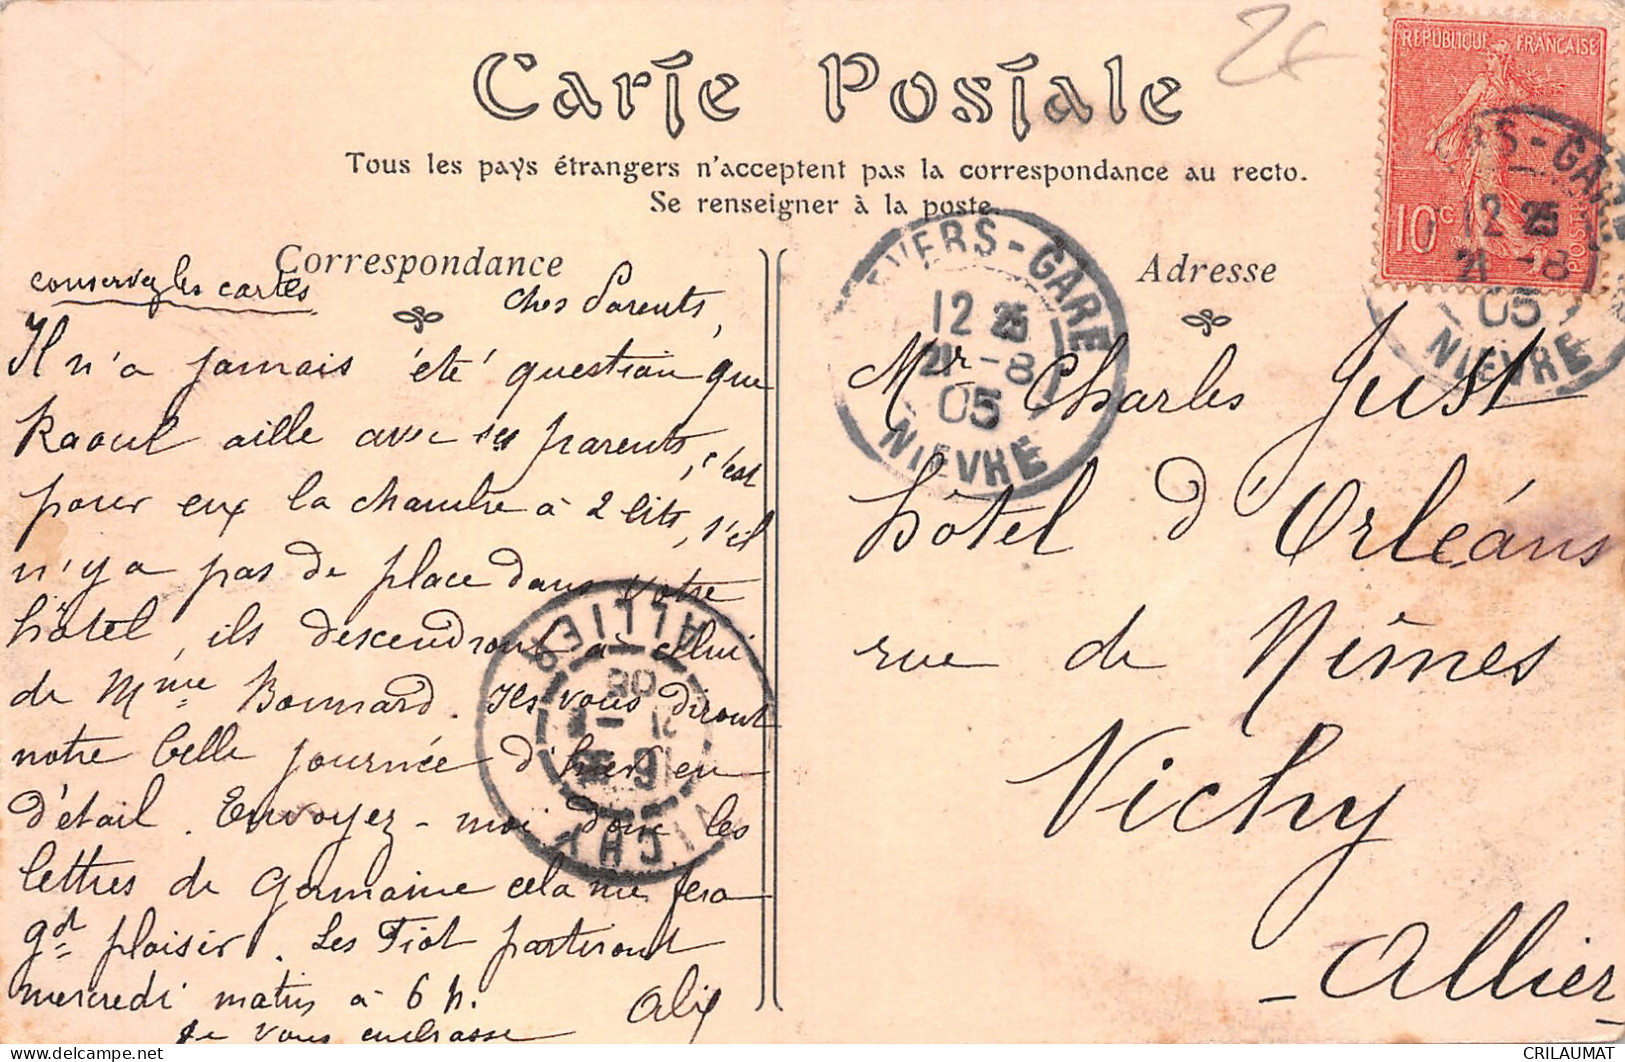 Carte Postale
Tous les pays étrangers n'acceptent pas la correspondance au recto.
Se renseigner à la poste.
Correspondance
conservez les cartes
Chers Parents,
Il n'a jamais été question que
Raoul aille avec ses parents, c'est
pour eux la chambre à 2 lits, s'il
n'y a pas de place dans votre
hôtel, ils descendront à celui
de Mme Bonnard. Ils vous diront
notre belle journée d'hier en
détail. Envoyez-moi donc les
lettres de Germaine cela me fera
gd plaisir. Les Fiot partiront
mercredi matin à 6 h.
Je vous embrasse
Alix
Adresse
Mr Charles Just
hôtel d'Orléans
rue de Nîmes
Vichy
- Allier -
REPUBLIQUE FRANÇAISE
10c
POSTES
NEVERS-GARE
12 25
21-8
05
NIEVRE
RS-GARE
12 25
21-8
05
NIEVRE
VICHY
ALLIER
CRILAUMAT